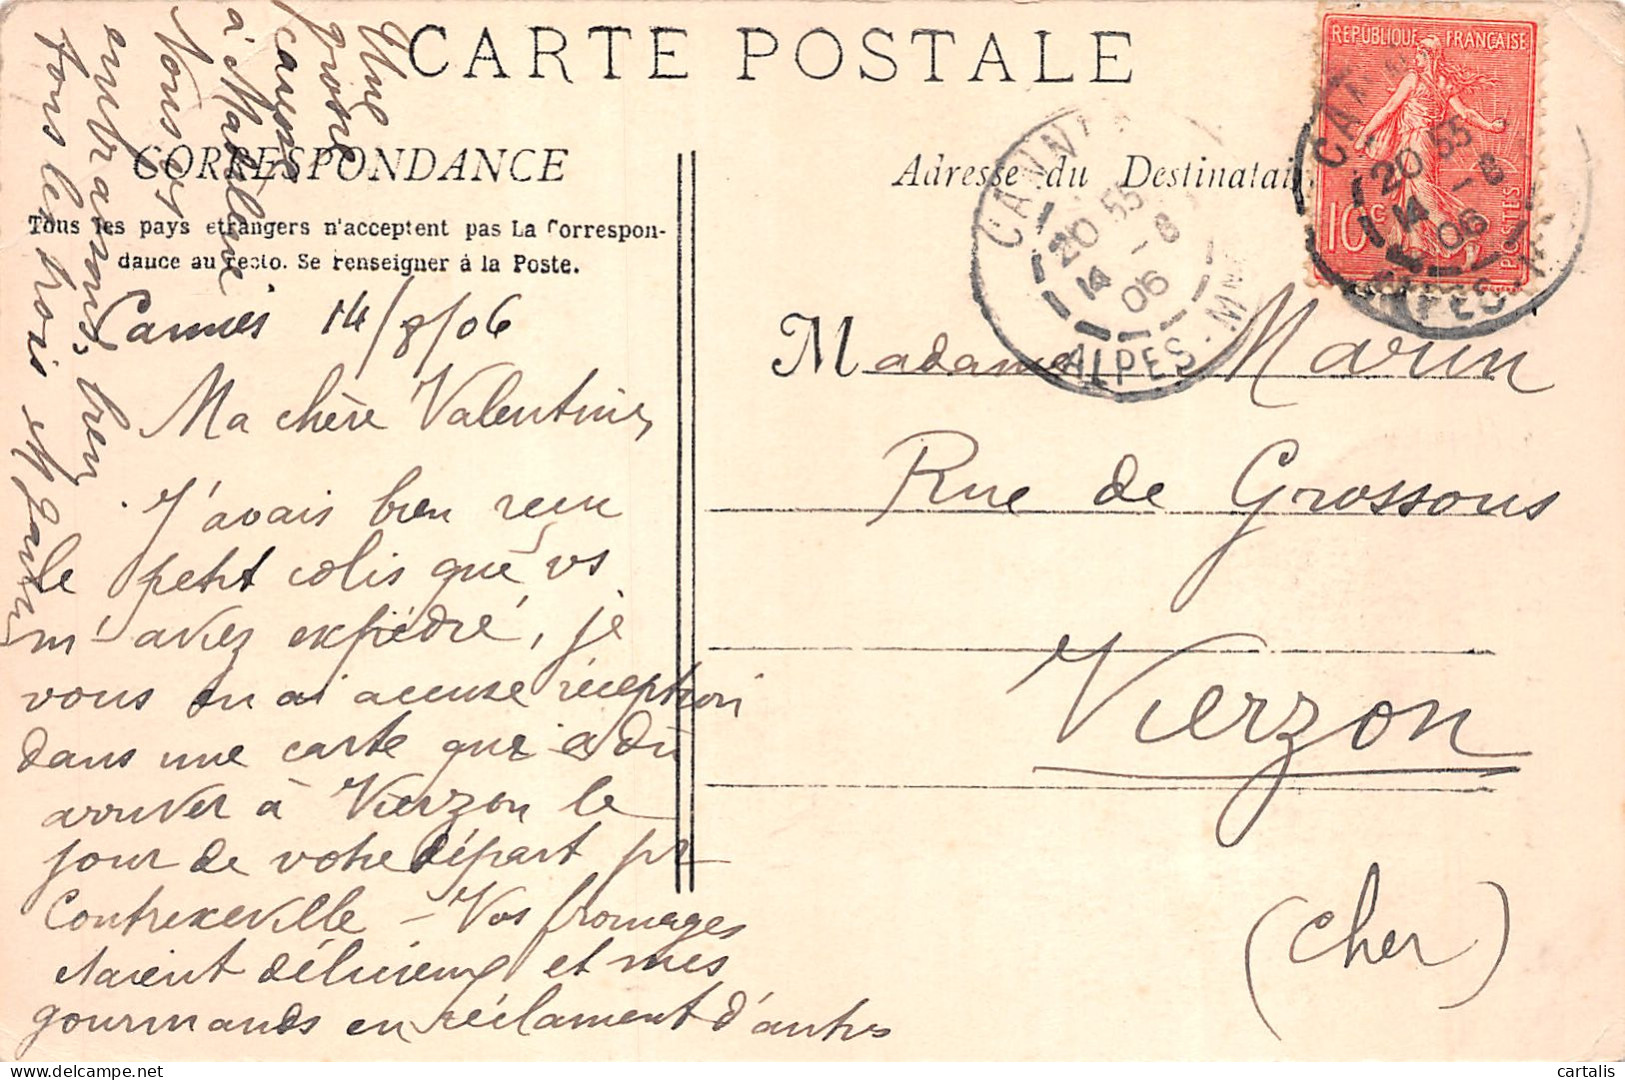 CARTE POSTALE
CORRESPONDANCE
Tous les pays etrangers n'acceptent pas La Correspon-
dance au recto. Se renseigner à la Poste.
Adresse du Destinatai
REPUBLIQUE FRANÇAISE
10c
POSTES
CANN
20 55
14 - 8
06
ALPES-MME
CA
20 55
14 - 8
06
ALPES-M
Cannes 14/8/06
Ma chère Valentine,
J'avais bien reçu
le petit colis que vs
m'aviez expédié, je
vous en ai accusé réception
dans une carte qui a dû
arriver à Vierzon le
jour de votre départ pr
Contrexeville – Vos fromages
étaient délicieux et mes
gourmands en réclament d'autres
Une
grosse
caresse
à
Nous
embrassons bien
tous les trois
Madame Marin
Rue de Grossous
Vierzon
(Cher)
cartalis
delcampe.net